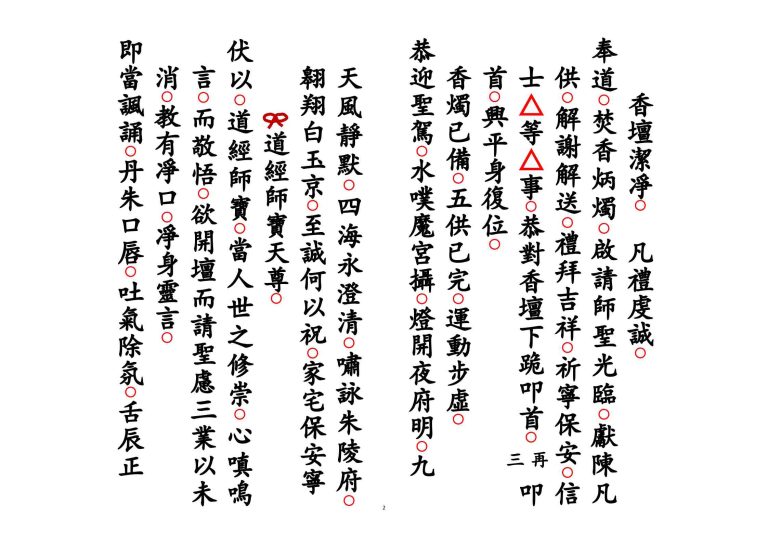 香壇潔凈○ 凡禮虔誠○
奉道○焚香炳燭○啟請師聖光臨○獻陳凡
供○解謝解送○禮拜吉祥○祈寧保安○信
士△等△事○恭對香壇下跪叩首○再三叩
首○興平身復位○
香燭已備○五供已完○運動步虛○
恭迎聖駕○水噗魔宮攝○燈開夜府明○九
天風靜默○四海永澄清○嘯詠朱陵府○
翱翔白玉京○至誠何以祝○家宅保安寧
道經師寶天尊○
伏以○道經師寶○當人世之修崇○心嗔鳴
言○而敬悟○欲開壇而請聖慮三業以未
消○教有凈口○凈身靈言○
即當諷誦○丹朱口唇○吐氣除氛○舌辰正
2